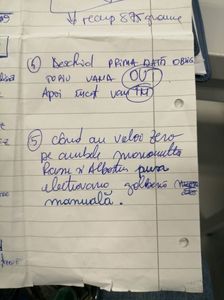 recup 875 grame
④ Deschid PRIMA DATĂ OBLIG
TORIU VANA OUT
Apoi încet van IN
⑤ când au valori zero
pe ambele manometre
Rosu și Albastru pun
electrovana galbenă
manuală.